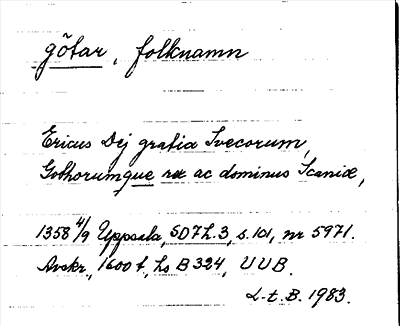 götar, folknamn
Ericus Dej gratia Svecorum,
Gothorumque rex ac dominus Scaniæ,
1358 4/9 Uppsala, SD7h.3, s.101, nr 5971.
Avskr., 1600t, hs B 324, UUB.
L-t. B. 1983.